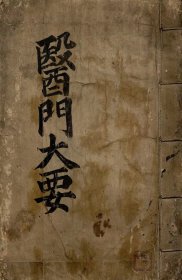 醫門大要